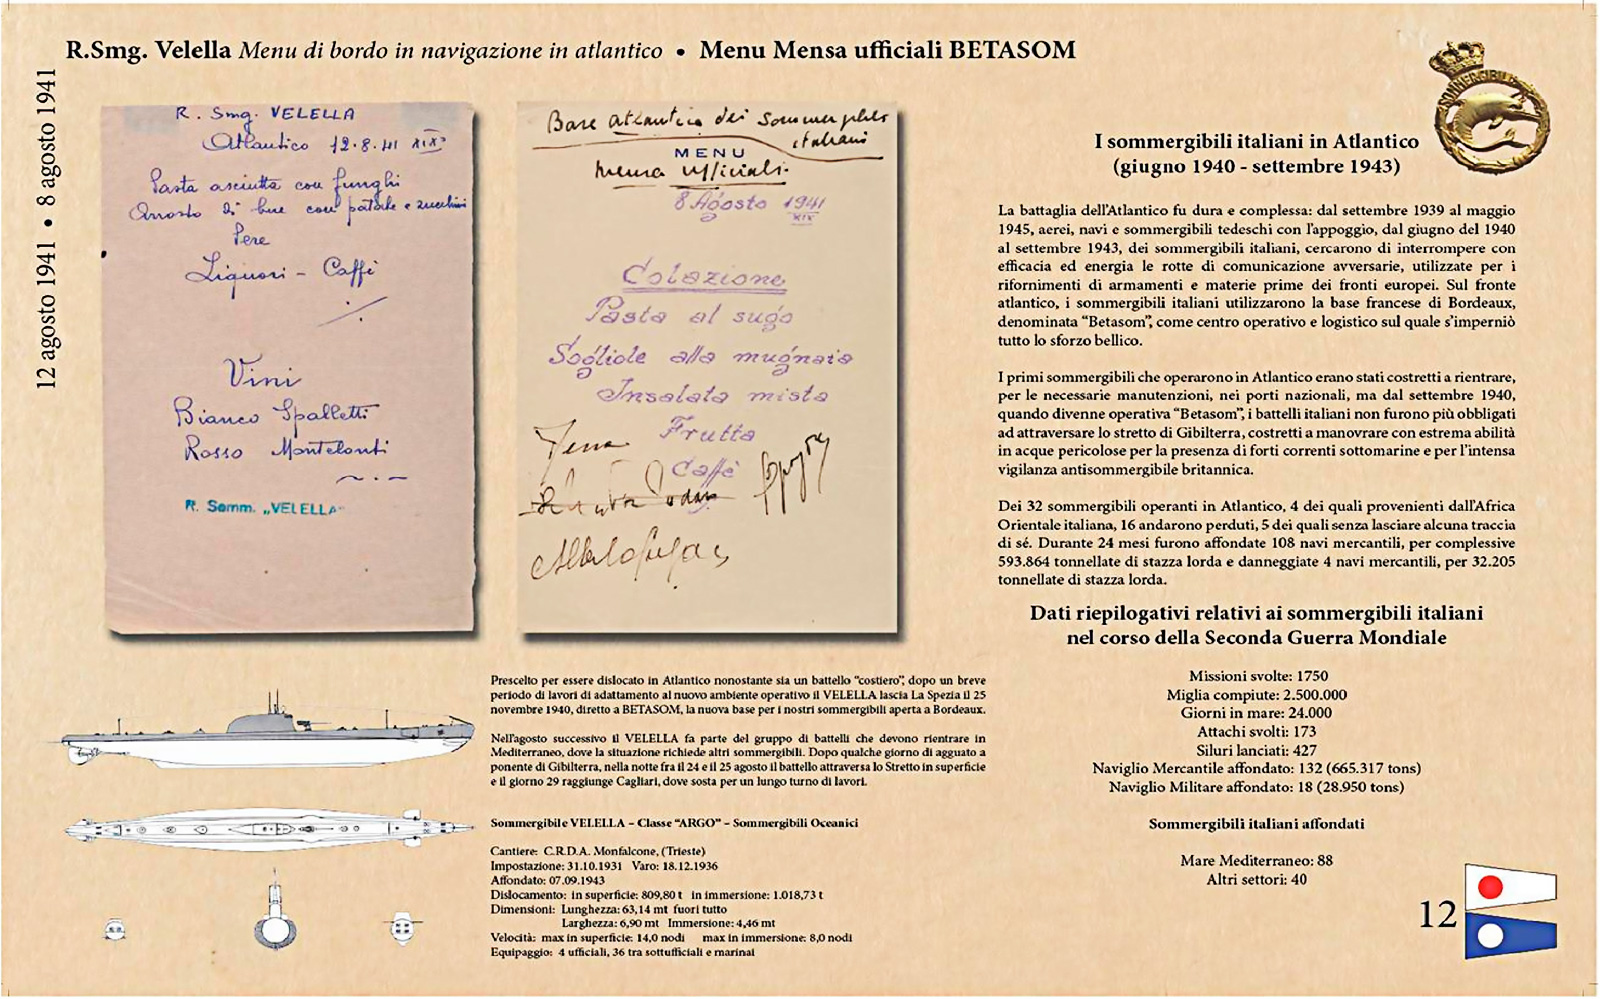 R.Smg. Velella Menu di bordo in navigazione in atlantico • Menu Mensa ufficiali BETASOM
12 agosto 1941 • 8 agosto 1941
R. Smg. VELELLA
Atlantico 12.8.41 XIX°
Pasta asciutta con funghi
Arrosto di bue con patate e zucchini
Pere
Liquori - Caffè
Vini
Bianco Spalletti
Rosso
R. Somm. „VELELLA"
Base atlantica dei Sommergibili
italiani
MENU
Mensa Ufficiali.
8 Agosto 1941
XIX
Colazione
Pasta al sugo
Sogliole alla mugnaia
Insalata mista
Frutta
Caffè
SOMMERGIBILI
I sommergibili italiani in Atlantico
(giugno 1940 - settembre 1943)
La battaglia dell'Atlantico fu dura e complessa: dal settembre 1939 al maggio
1945, aerei, navi e sommergibili tedeschi con l'appoggio, dal giugno del 1940
al settembre 1943, dei sommergibili italiani, cercarono di interrompere con
efficacia ed energia le rotte di comunicazione avversarie, utilizzate per i
rifornimenti di armamenti e materie prime dei fronti europei. Sul fronte
atlantico, i sommergibili italiani utilizzarono la base francese di Bordeaux,
denominata "Betasom", come centro operativo e logistico sul quale s'imperniò
tutto lo sforzo bellico.
I primi sommergibili che operarono in Atlantico erano stati costretti a rientrare,
per le necessarie manutenzioni, nei porti nazionali, ma dal settembre 1940,
quando divenne operativa "Betasom", i battelli italiani non furono più obbligati
ad attraversare lo stretto di Gibilterra, costretti a manovrare con estrema abilità
in acque pericolose per la presenza di forti correnti sottomarine e per l'intensa
vigilanza antisommergibile britannica.
Dei 32 sommergibili operanti in Atlantico, 4 dei quali provenienti dall'Africa
Orientale italiana, 16 andarono perduti, 5 dei quali senza lasciare alcuna traccia
di sé. Durante 24 mesi furono affondate 108 navi mercantili, per complessive
593.864 tonnellate di stazza lorda e danneggiate 4 navi mercantili, per 32.205
tonnellate di stazza lorda.
Dati riepilogativi relativi ai sommergibili italiani
nel corso della Seconda Guerra Mondiale
Missioni svolte: 1750
Miglia compiute: 2.500.000
Giorni in mare: 24.000
Attachi svolti: 173
Siluri lanciati: 427
Naviglio Mercantile affondato: 132 (665.317 tons)
Naviglio Militare affondato: 18 (28.950 tons)
Sommergibili italiani affondati
Mare Mediterraneo: 88
Altri settori: 40
Prescelto per essere dislocato in Atlantico nonostante sia un battello "costiero", dopo un breve
periodo di lavori di adattamento al nuovo ambiente operativo il VELELLA lascia La Spezia il 25
novembre 1940, diretto a BETASOM, la nuova base per i nostri sommergibili aperta a Bordeaux.
Nell'agosto successivo il VELELLA fa parte del gruppo di battelli che devono rientrare in
Mediterraneo, dove la situazione richiede altri sommergibili. Dopo qualche giorno di agguato a
ponente di Gibilterra, nella notte fra il 24 e il 25 agosto il battello attraversa lo Stretto in superficie
e il giorno 29 raggiunge Cagliari, dove sosta per un lungo turno di lavori.
Sommergibile VELELLA – Classe "ARGO" – Sommergibili Oceanici
Cantiere: C.R.D.A. Monfalcone, (Trieste)
Impostazione: 31.10.1931 Varo: 18.12.1936
Affondato: 07.09.1943
Dislocamento: in superficie: 809,80 t in immersione: 1.018,73 t
Dimensioni: Lunghezza: 63,14 mt fuori tutto
Larghezza: 6,90 mt Immersione: 4,46 mt
Velocità: max in superficie: 14,0 nodi max in immersione: 8,0 nodi
Equipaggio: 4 ufficiali, 36 tra sottufficiali e marinai
12